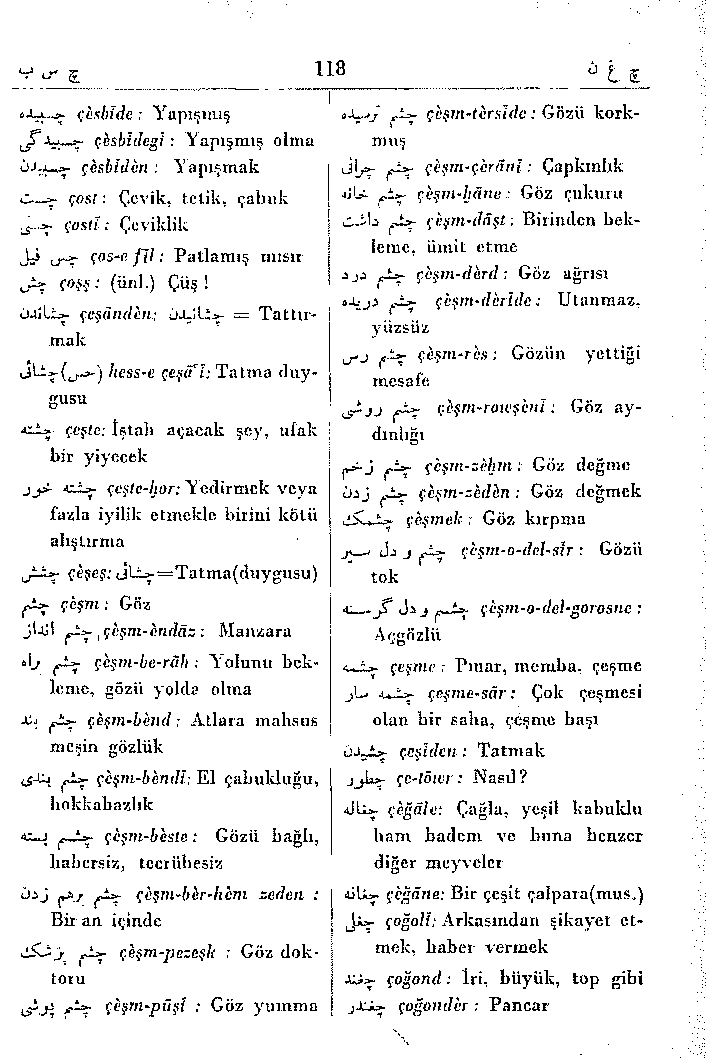 چ س ب 118 چ غ ن
چسبیده çèsbîde : Yapışmış
چسبیدگی çèsbîdegî : Yapışmış olma
چسبیدن çèsbîdèn : Yapışmak
چست çost : Çevik, tetik, çabuk
چستی çostî : Çeviklik
چس فیل ços-e fîl : Patlamış mısır
چش çoşş : (ünl.) Çüş !
چشاندن çeşândèn; چشانیدن = Tattır-
mak
چشائی (حس) hess-e çeşâ'î: Tatma duy-
gusu
چشته çeşte: İştah açacak şey, ufak
bir yiyecek
چشته خور çeşte-ḫor: Yedirmek veya
fazla iyilik etmekle birini kötü
alıştırma
چشش çèşeş: چشائی=Tatma(duygusu)
چشم çèşm : Göz
چشم انداز çèşm-èndâz : Manzara
چشم براه çèşm-be-râh : Yolunu bek-
leme, gözü yolda olma
چشم بند çèşm-bènd : Atlara mahsus
meşin gözlük
چشم بندی çèşm-bèndî: El çabukluğu,
hokkabazlık
چشم بسته çèşm-bèste : Gözü bağlı,
habersiz, tecrübesiz
چشم برهم زدن çèşm-bèr-hèm zeden :
Bir an içinde
چشم پزشك çèşm-pezeşk : Göz dok-
toru
چشم پوشی çèşm-pûşî : Göz yumma
چشم ترسیده çèşm-tèrsîde : Gözü kork-
muş
چشم چرانی çèşm-çèrânî : Çapkınlık
چشم خانه çèşm-ḫâne : Göz çukuru
چشم داشت çèşm-dâşt : Birinden bek-
leme, ümit etme
چشم درد çèşm-dèrd : Göz ağrısı
چشم دریده çèşm-dèrîde : Utanmaz,
yüzsüz
چشم رس çèşm-rès : Gözün yettiği
mesafe
چشم روشنی çèşm-rowşènî : Göz ay-
dınlığı
چشم زخم çèşm-zèḫm : Göz değme
چشم زدن çèşm-zèdèn : Göz değmek
چشمك çèşmek : Göz kırpma
چشم و دل سیر çèşm-o-del-sîr : Gözü
tok
چشم و دل گرسنه çèşm-o-del-gorosne :
Açgözlü
چشمه çeşme : Pınar, memba, çeşme
چشمه سار çeşme-sâr : Çok çeşmesi
olan bir saha, çeşme başı
چشیدن çeşîden : Tatmak
چطور çe-tòwr : Nasıl?
چغاله çèğâle: Çağla, yeşil kabuklu
ham badem ve buna benzer
diğer meyveler
چغانه çèğâne: Bir çeşit çalpara(mus.)
چغلی çoğolî: Arkasından şikayet et-
mek, haber vermek
چغند çoğond : İri, büyük, top gibi
چغندر çoğondèr : Pancar